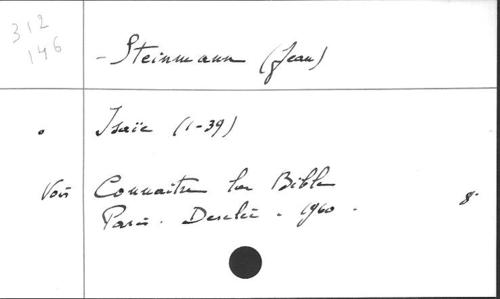 312
146
- Steinmann (Jean)
Isaïe (1-39)
Voir Connaitre la Bible
Paris. Desclée. 1960. 8°